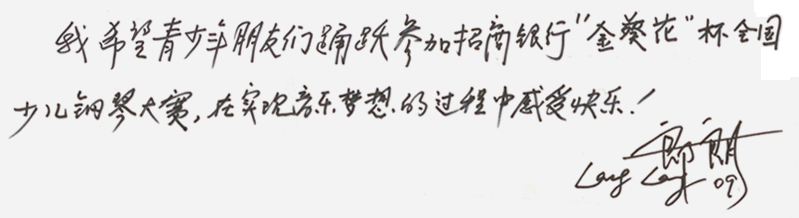 我希望青少年朋友们踊跃参加招商银行“金葵花”杯全国
少儿钢琴大赛，在实现音乐梦想的过程中感受快乐！
郎朗
Lang Lang 09